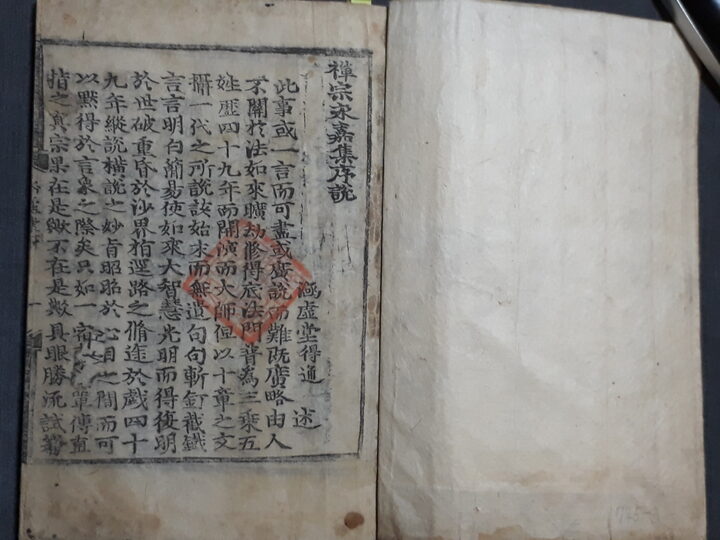 禪宗永嘉集序說
涵虛堂得通 述
此事或一言而可盡或廣說而難旣廣略由人
不關於法如來曠劫修得底法門菩為三乘五
姓歷四十九年而開演而大師但以十章之文
攝一代之所說該始末而無遺句句斬釘截鐵
言言明白簡易使如來大智慧光明而得復明
於世破重昏於沙界指迷路之脩途於戲四十
九年縱說橫說之妙旨昭昭於心目之間而可
以默得於言象之際矣只如一 單傳直
指之真宗果在是歟不在是歟具眼勝流試著